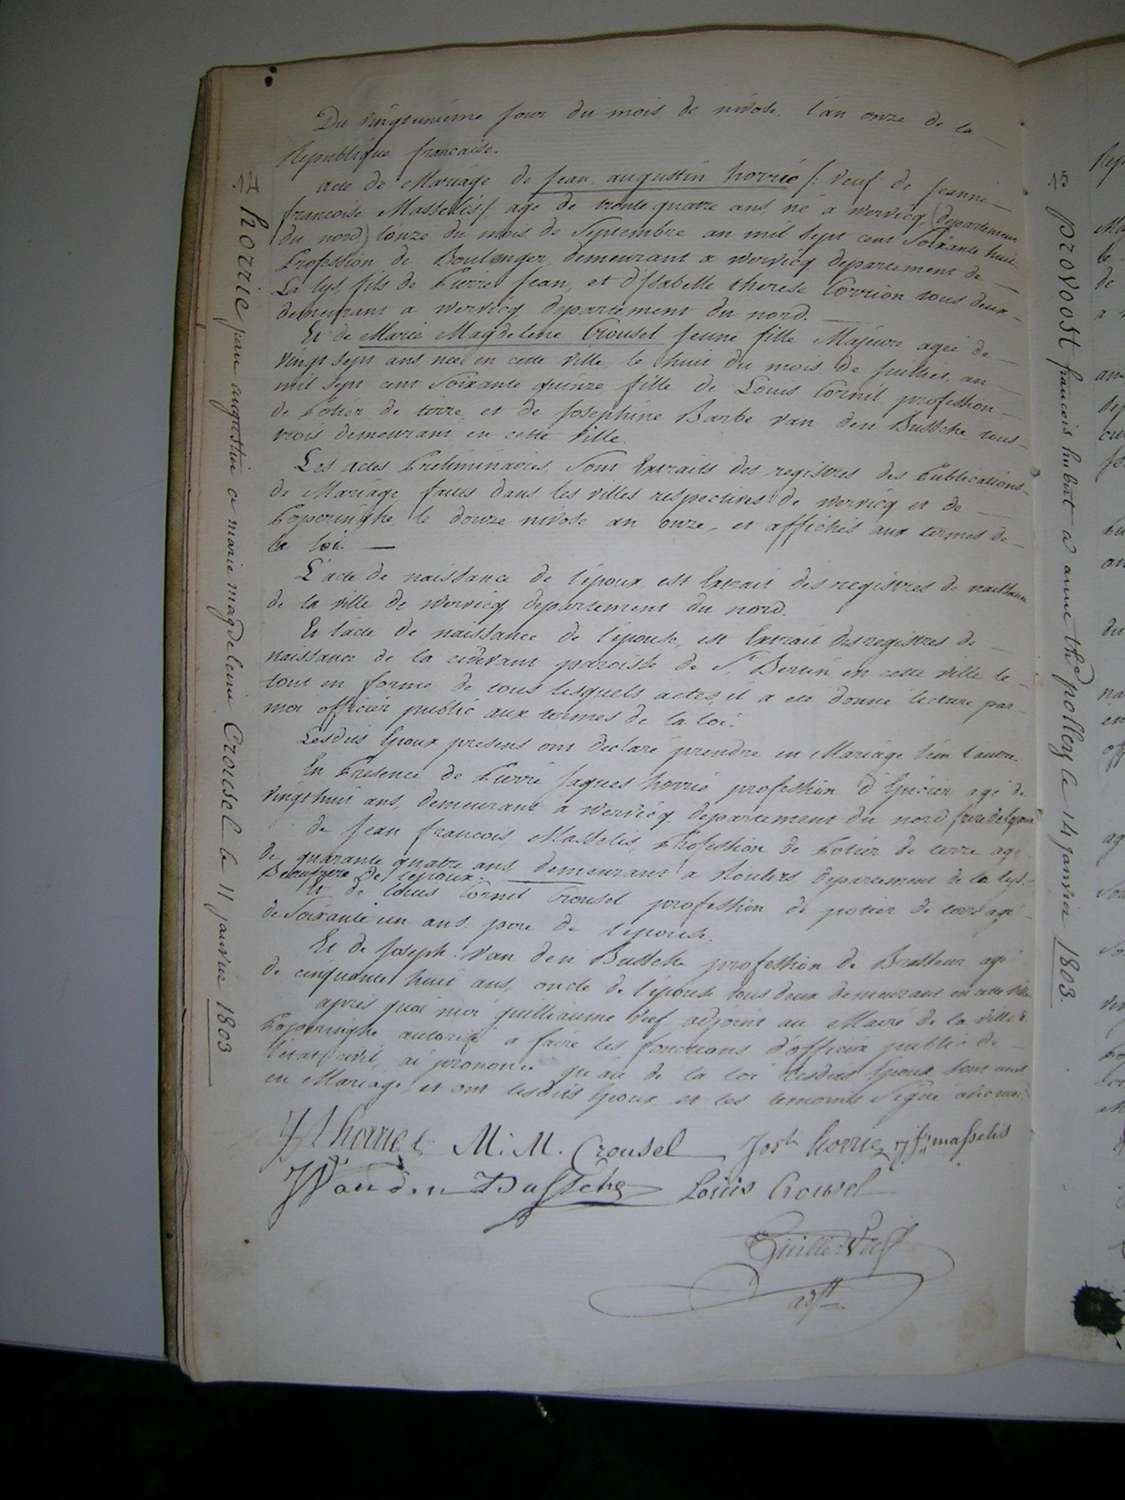 Du vingtunieme jour du mois de nivose, l'an onze de la
Republique francaise.
acte de Mariage de jean augustin horrie /: veuf de jeanne
francoise Masselis / agé de trente quatre ans, né a wervicq (departement
du nord) l'onze du mois de Septembre an mil sept cent Soixante huit
Profession de Boulanger, demeurant a wervicq departement de
La lys, fils de Pierre jean, et d'Isabelle therese Corrion tous deux
demeurant a wervicq departement du nord.
Et de Marie Magdelene Crousel jeune fille Majeure agée de
vingt sept ans née en cette ville, le huit du mois de juillet an
mil sept cent Soixante quinze fille de Louis Cornil profession
de Potier de terre, et de Josephine Barbe van den Bussche tous
trois demeurant en cette ville.
Les actes Preliminaires, Sont Extraits des registres des Publications
de Mariage faites dans les villes respectives de wervicq et de
Poperinghe le douze nivose an onze, et affichés aux termes de
la loi.
L'acte de naissance de l'époux est Extrait des registres de naissance
de la ville de wervicq departement du nord.
Et l'acte de naissance de l'épouse, est Extrait des registres de
naissance de la cidevant paroisse de St Bertin en cette ville le
tout en forme, de tous lesquels actes, il a eté donné lecture par
moi officier public aux termes de la loi.
Lesdits Epoux presens ont declaré prendre en Mariage l'un l'autre.
En Presence de Pierre jaques horrie profession d'Epicier agé de
vingt huit ans, demeurant a wervicq departement du nord frere de l'epoux
de jean francois Masselis, Profession de Potier de terre agé
de quarante quatre ans, demeurant a Roulers departement de la lys
Beaufrere de l'epoux.
Et de Louis Cornil Crousel profession de potier de terre agé
de Soixante un ans pere de l'épouse.
Et de joseph van den Bussche profession de Brasseur agé
de cinquante huit ans, oncle de l'épouse tous deux demeurant en cette ville
après quoi moi guilliaume Veuf adjoint au Maire de la ville de
Poperinghe autorisé a faire les fonctions d'officier public de
l'état civil, ai prononcé qu'au nom de la loi lesdits Epoux sont unis
en Mariage et ont lesdits Epoux et les temoins Signé avec moi
M: M. Crousel Josph horrie jf masselis
J Van den Bussche Louis Crousel
adjt
14 horrie jean augustin a marie magdelene Crousel le 11 janvier 1803
15 provoost francois hubert a anne thé polley le 14 janvier 1803.